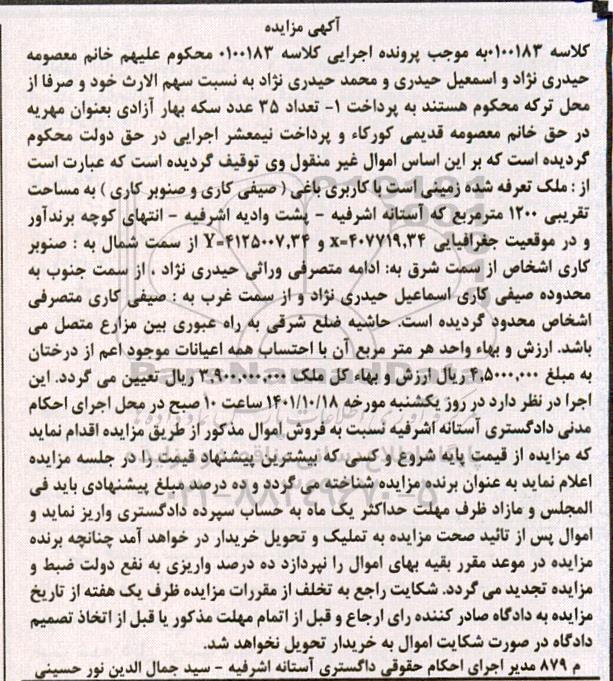 آگهی مزایده
کلاسه ۰۱۰۰۱۸۳به موجب پرونده اجرایی کلاسه ۰۱۰۰۱۸۳ محکوم علیهم خانم معصومه
حیدری نژاد و اسمعیل حیدری و محمد حیدری نژاد به نسبت سهم الارث خود و صرفا از
محل ترکه محکوم هستند به پرداخت ۱- تعداد ۳۵ عدد سکه بهار آزادی بعنوان مهریه
در حق خانم معصومه قدیمی کورکاء و پرداخت نیمعشر اجرایی در حق دولت محکوم
گردیده است که بر این اساس اموال غیر منقول وی توقیف گردیده است که عبارت است
از : ملک تعرفه شده زمینی است با کاربری باغی ( صیفی کاری و صنوبر کاری ) به مساحت
تقریبی ۱۲۰۰ مترمربع که آستانه اشرفیه - پشت وادیه اشرفیه - انتهای کوچه برندآور
و در موقعیت جغرافیایی x=۴۰۷۷۱۹,۳۴ و Y=۴۱۲۵۰۰۷,۳۴ از سمت شمال به : صنوبر
کاری اشخاص از سمت شرق به: ادامه متصرفی وراثی حیدری نژاد ، از سمت جنوب به
محدوده صیفی کاری اسماعیل حیدری نژاد و از سمت غرب به : صیفی کاری متصرفی
اشخاص محدود گردیده است. حاشیه ضلع شرقی به راه عبوری بین مزارع متصل می
باشد. ارزش و بهاء واحد هر متر مربع آن با احتساب همه اعیانات موجود اعم از درختان
به مبلغ ۴,۵۰۰۰,۰۰۰ ریال ارزش و بهاء کل ملک ۳,۹۰۰,۰۰۰,۰۰۰ ریال تعیین می گردد. این
اجرا در نظر دارد در روز یکشنبه مورخه ۱۴۰۱/۱۰/۱۸ ساعت ۱۰ صبح در محل اجرای احکام
مدنی دادگستری آستانه اشرفیه نسبت به فروش اموال مذکور از طریق مزایده اقدام نماید
که مزایده از قیمت پایه شروع و کسی که بیشترین پیشنهاد قیمت را در جلسه مزایده
اعلام نماید به عنوان برنده مزایده شناخته می گردد و ده درصد مبلغ پیشنهادی باید فی
المجلس و مازاد ظرف مهلت حداکثر یک ماه به حساب سپرده دادگستری واریز نماید و
اموال پس از تائید صحت مزایده به تملیک و تحویل خریدار در خواهد آمد چنانچه برنده
مزایده در موعد مقرر بقیه بهای اموال را نپردازد ده درصد واریزی به نفع دولت ضبط و
مزایده تجدید می گردد. شکایت راجع به تخلف از مقررات مزایده ظرف یک هفته از تاریخ
مزایده به دادگاه صادر کننده رای ارجاع و قبل از اتمام مهلت مذکور یا قبل از اتخاذ تصمیم
دادگاه در صورت شکایت اموال به خریدار تحویل نخواهد شد.
م ۸۷۹ مدیر اجرای احکام حقوقی داگستری آستانه اشرفیه - سید جمال الدین نور حسینی
ParsNamadData
۰۲۱-۸۸۳۴۹۶۷۰-۵